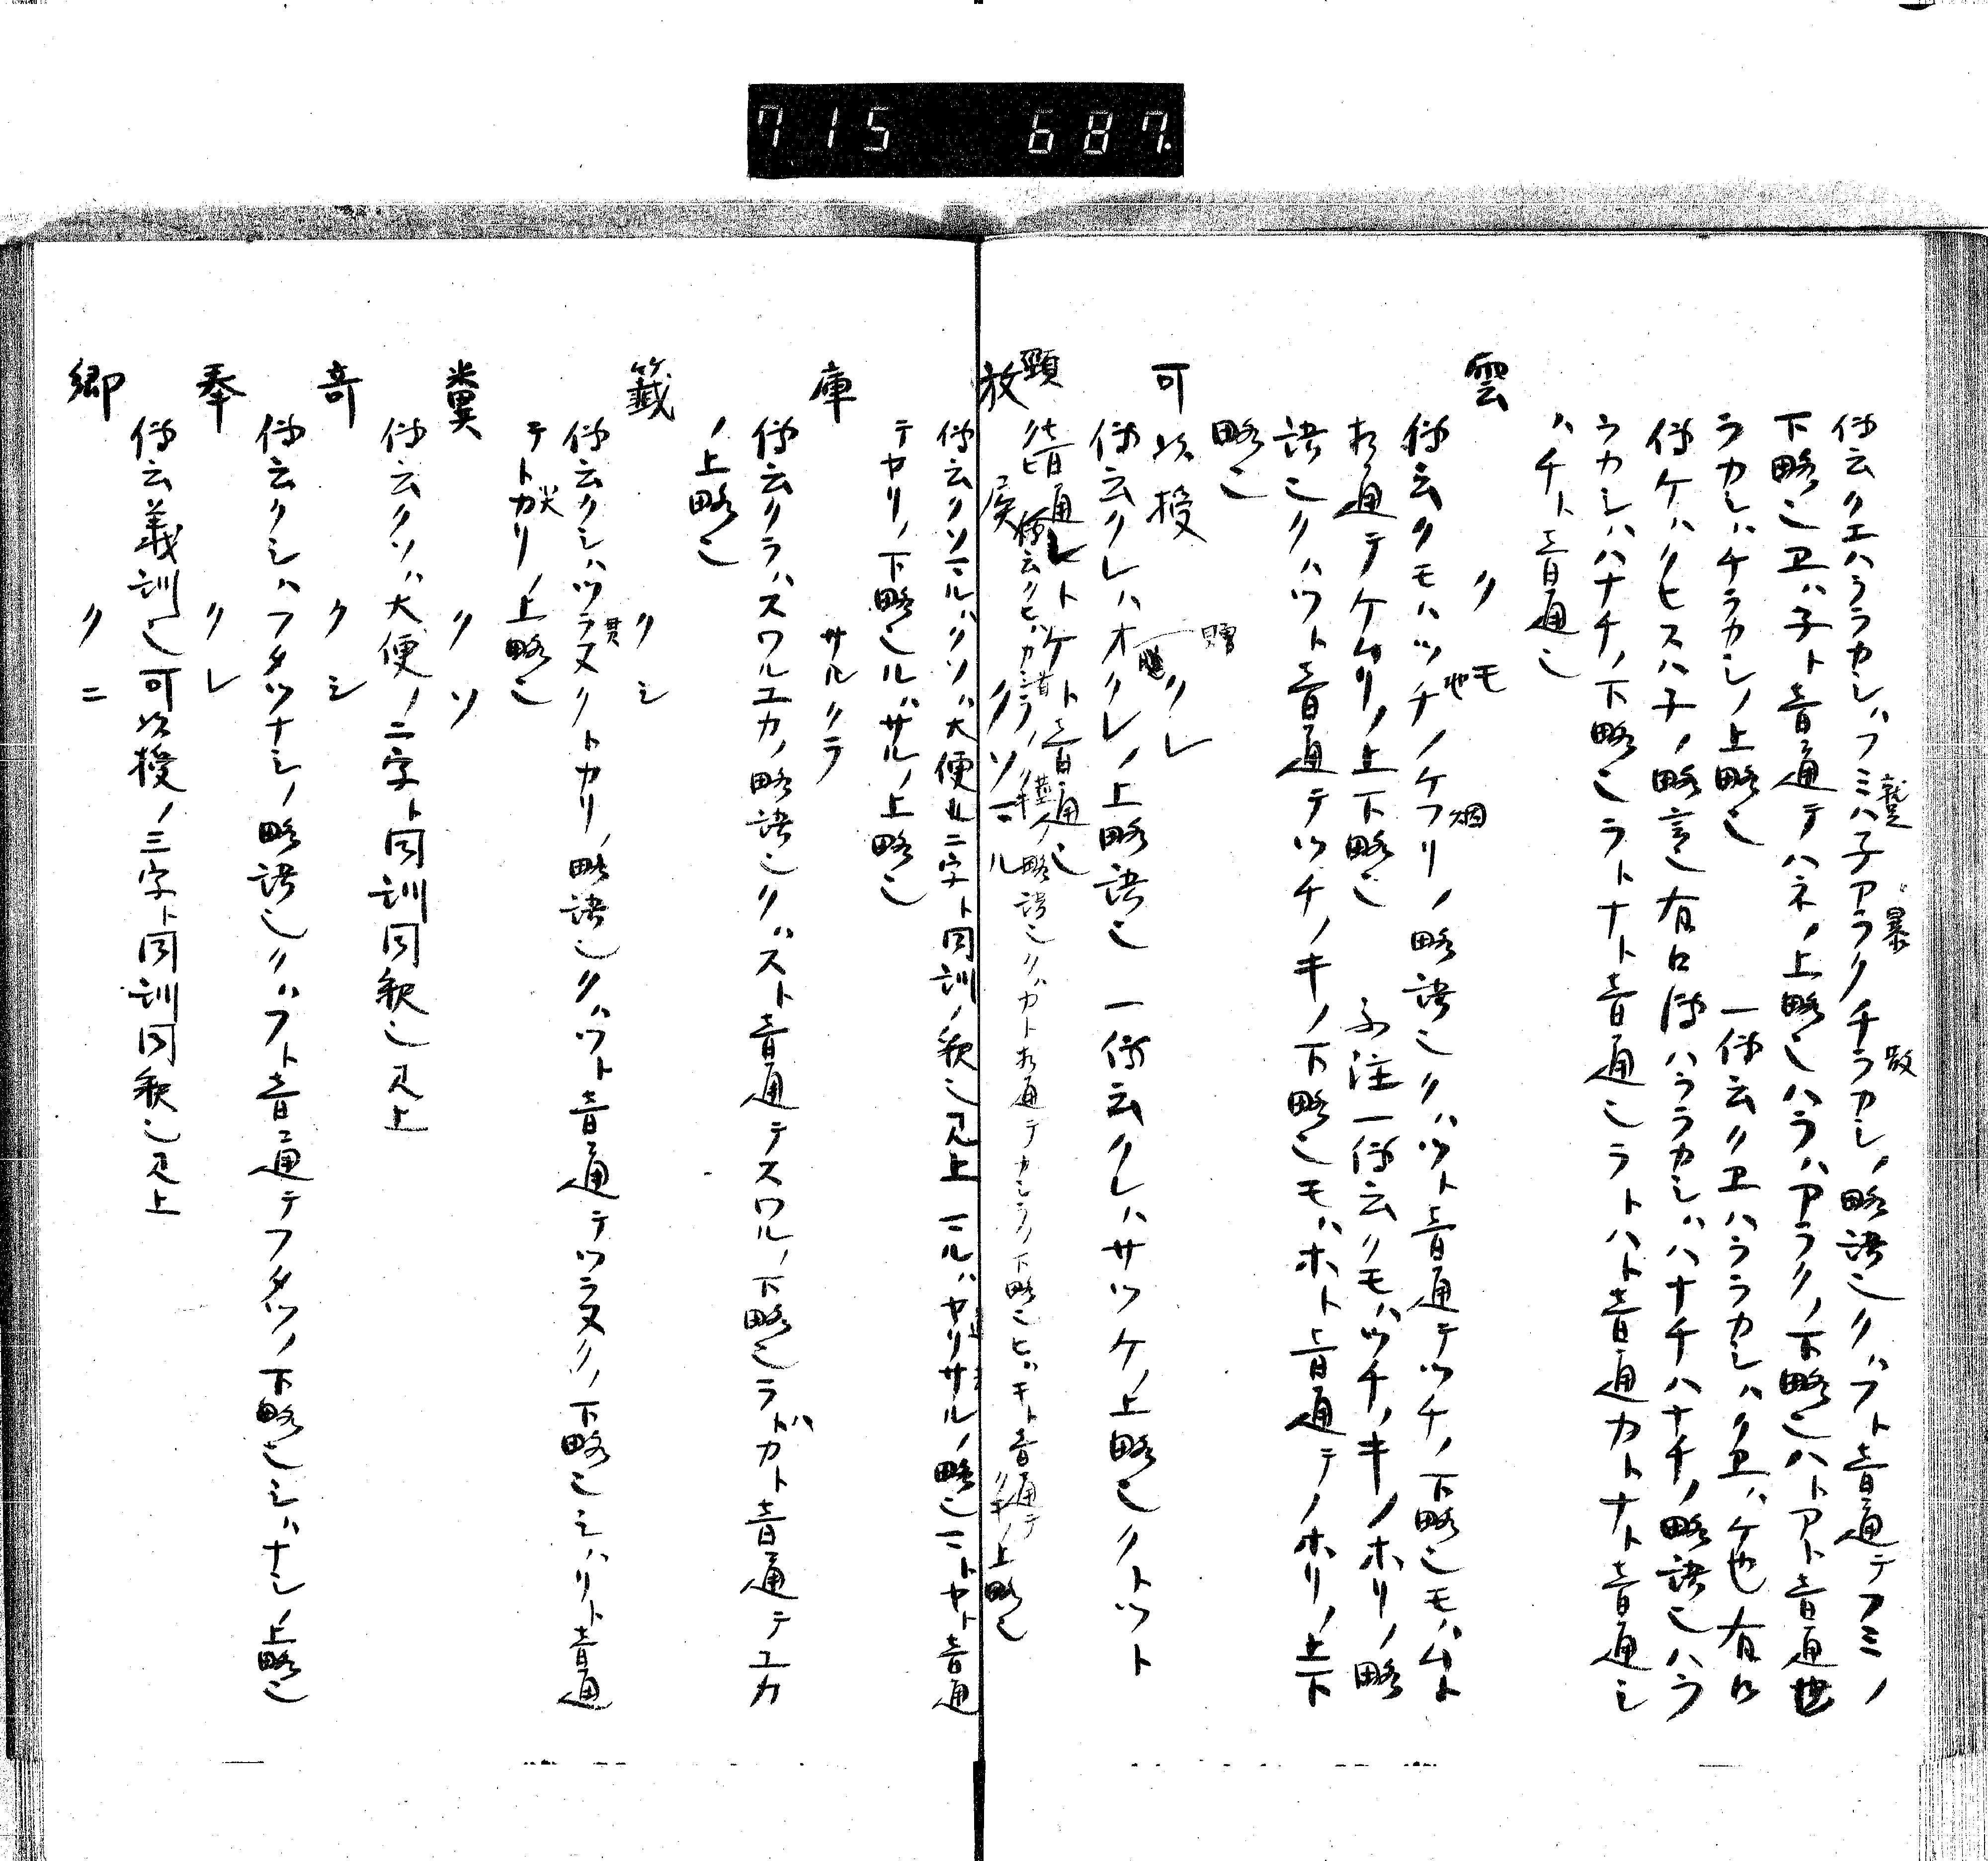 715 687.
傳云クエハララカシハフミハ子アラクチラカシノ略語也クハフト音通テフミノ
下略也ヱハ子ト音通テハネノ上略也ハラハアラクノ下略也ハトアト音通也
ラカシハチラカシノ上略也 一傳云クヱハララカシハクヱハケ也有口
傳ケハクヒスハ子ノ略言也有口傳ハララカシハハナチハナチノ略語也ハラ
ラカシハハナチノ下略也ラトナト音通也ラトハト音通カトナト音通シ
ハチト音通也
雲 クモ
傳云クモハツチノケフリノ略語也クハツト音通テツチノ下略也モハムト
相通テケムリノ上下略也 不注一傳云クモハツチノキノホリノ略
語也クハツト音通テツチノキノ下略也モハホト音通テノホリノ上下
略也
可以授 クレ
傳云クレハオクレノ上略語也 一傳云クレハサツケノ上略也クトツト
音通レトケト音通也
頸 クヒ
傳云クヒハカシラノ略語也クハカト相通テカシラノ下略也ヒハキト音通テ上略也
放屎 クソマル
傳云クソマルハクソハ大便ノ二字ト同訓ノ釈也見上マルハヤリサルノ略也マトヤト音通
テヤリノ下略也ルハサルノ上略也
庫 サルクラ
傳云クラハスワルエカノ略語也クハスト音通テスワルノ下略也ラハカト音通テエカ
ノ上略也
籤 クシ
傳云クシハツラヌクトカリノ略語也クハツト音通テツラヌクノ下略也シハリト音通
テトカリノ上略也
糞 クソ
傳云クソハ大便ノ二字ト同訓同釈也見上
奇 クシ
傳云クシハフタツナシノ略語也クハフト音通テフタツノ下略也シハナシノ上略也
奉 クレ
傳云義訓也可以授ノ三字ト同訓同釈也見上
郷 クニ